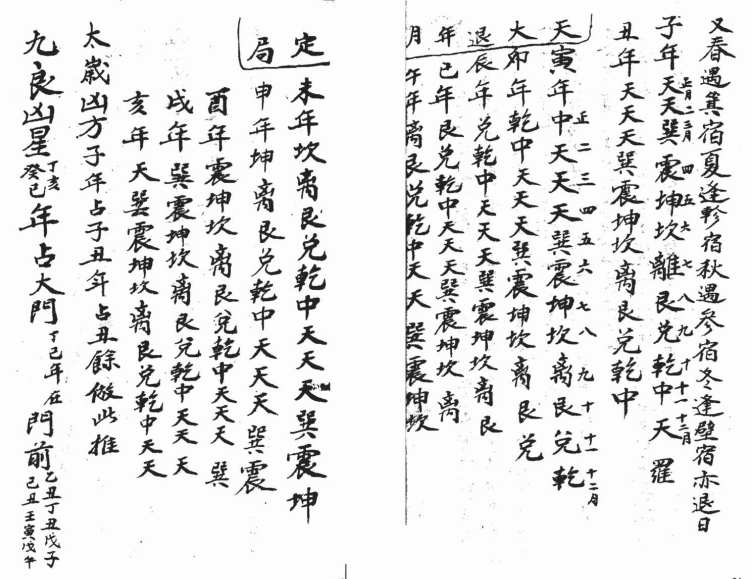 又春遇箕宿夏逢軫宿秋遇參宿冬逢壁宿亦退日
子年天天巽震坤坎離艮兑乾中天羅
正月二三月四五六七八九十十一十二月
丑年天天天巽震坤坎离艮兑乾中
正二三四五六七八九十十一十二月
天寅年中天天天巽震坤坎离艮兑乾
大卯年乾中天天天巽震坤坎离艮兑
退辰年兑乾中天天天巽震坤坎离艮
年巳年艮兑乾中天天天巽震坤坎离
月午年离艮兑乾中天天巽震坤坎
定未年坎离艮兑乾中天天天巽震坤
局申年坤离艮兑乾中天天天巽震
酉年震坤坎离艮兑乾中天天天巽
戌年巽震坤坎离艮兑乾中天天天
亥年天巽震坤坎离艮兑乾中天天
太歲凶方子年占子丑年占丑餘倣此推
九良凶星丁亥癸巳年占大門丁巳年在門前乙丑丁丑戊子己丑壬寅戊午